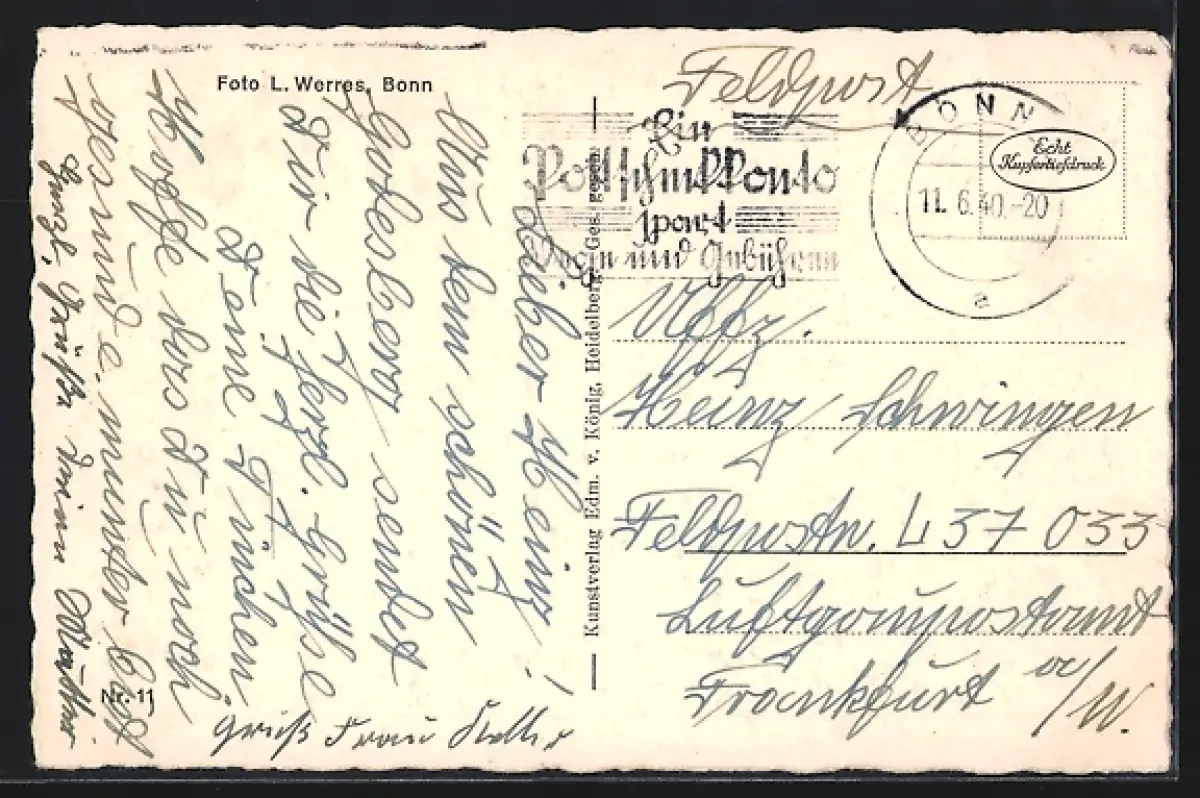 Foto L. Werres, Bonn
Lieber Heinz!
Aus dem schönen
Godesberg sendet
Dir die herzl. Grüße
Deine Finchen.
Hoffe das Du noch
gesund e. munter bist
Herzl. Grüße Deine Mutter
Gruß Frau Keller
Nr. 11
Kunstverlag Edm. v. König, Heidelberg. Ges. gesch.
Feldpost
Ein
Postscheckkonto
spart
und Gebühren
BONN
11.6.40.-20
a
Echt
Kupfertiefdruck
Uffz.
Heinz Schwingen
Feldpostn. L 37 033
Luftgaupostamt
Frankfurt a/M.